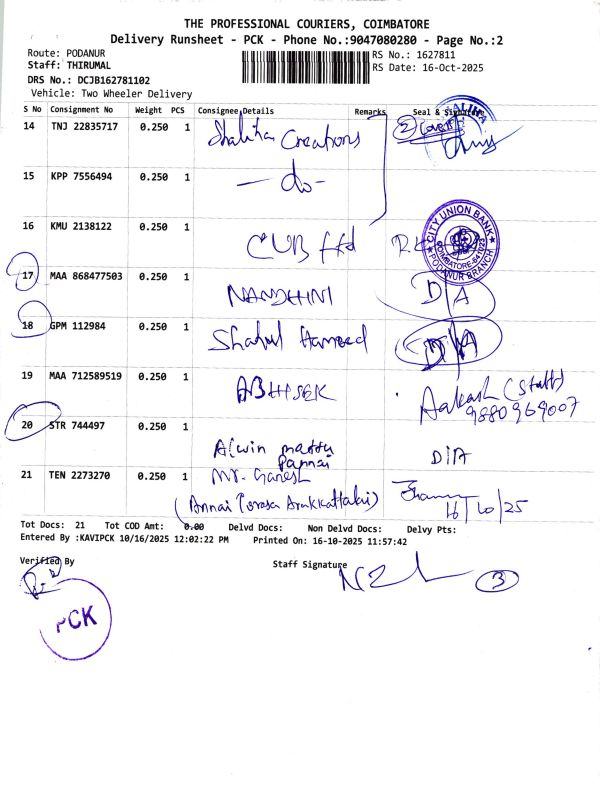 THE PROFESSIONAL COURIERS, COIMBATORE
Delivery Runsheet - PCK - Phone No.:9047080280 - Page No.:2
Route: PODANUR
Staff: THIRUMAL
RS No.: 1627811
RS Date: 16-Oct-2025
DRS No.: DCJB162781102
Vehicle: Two Wheeler Delivery
S No Consignment No Weight PCS Consignee Details Remarks Seal & Signature
14 TNJ 22835717 0.250 1 Shalika Creations
15 KPP 7556494 0.250 1 — do —
16 KMU 2138122 0.250 1 CUB
CITY UNION BANK
COIMBATORE-641023
PODANUR BRANCH
17 MAA 868477503 0.250 1 NANDHINI D/A
18 GPM 112984 0.250 1 Shahul Hameed D/A
19 MAA 712589519 0.250 1 ABHISEK Aakash (Staff)
9880969007
20 STR 744497 0.250 1 Alwin D/A
21 TEN 2273270 0.250 1 Mr. Ganesh
(Annai Arakkattalai) 16/10/25
Tot Docs: 21 Tot COD Amt: 0.00 Delvd Docs: Non Delvd Docs: Delvy Pts:
Entered By :KAVIPCK 10/16/2025 12:02:22 PM Printed On: 16-10-2025 11:57:42
Verified By
Staff Signature 3
PCK